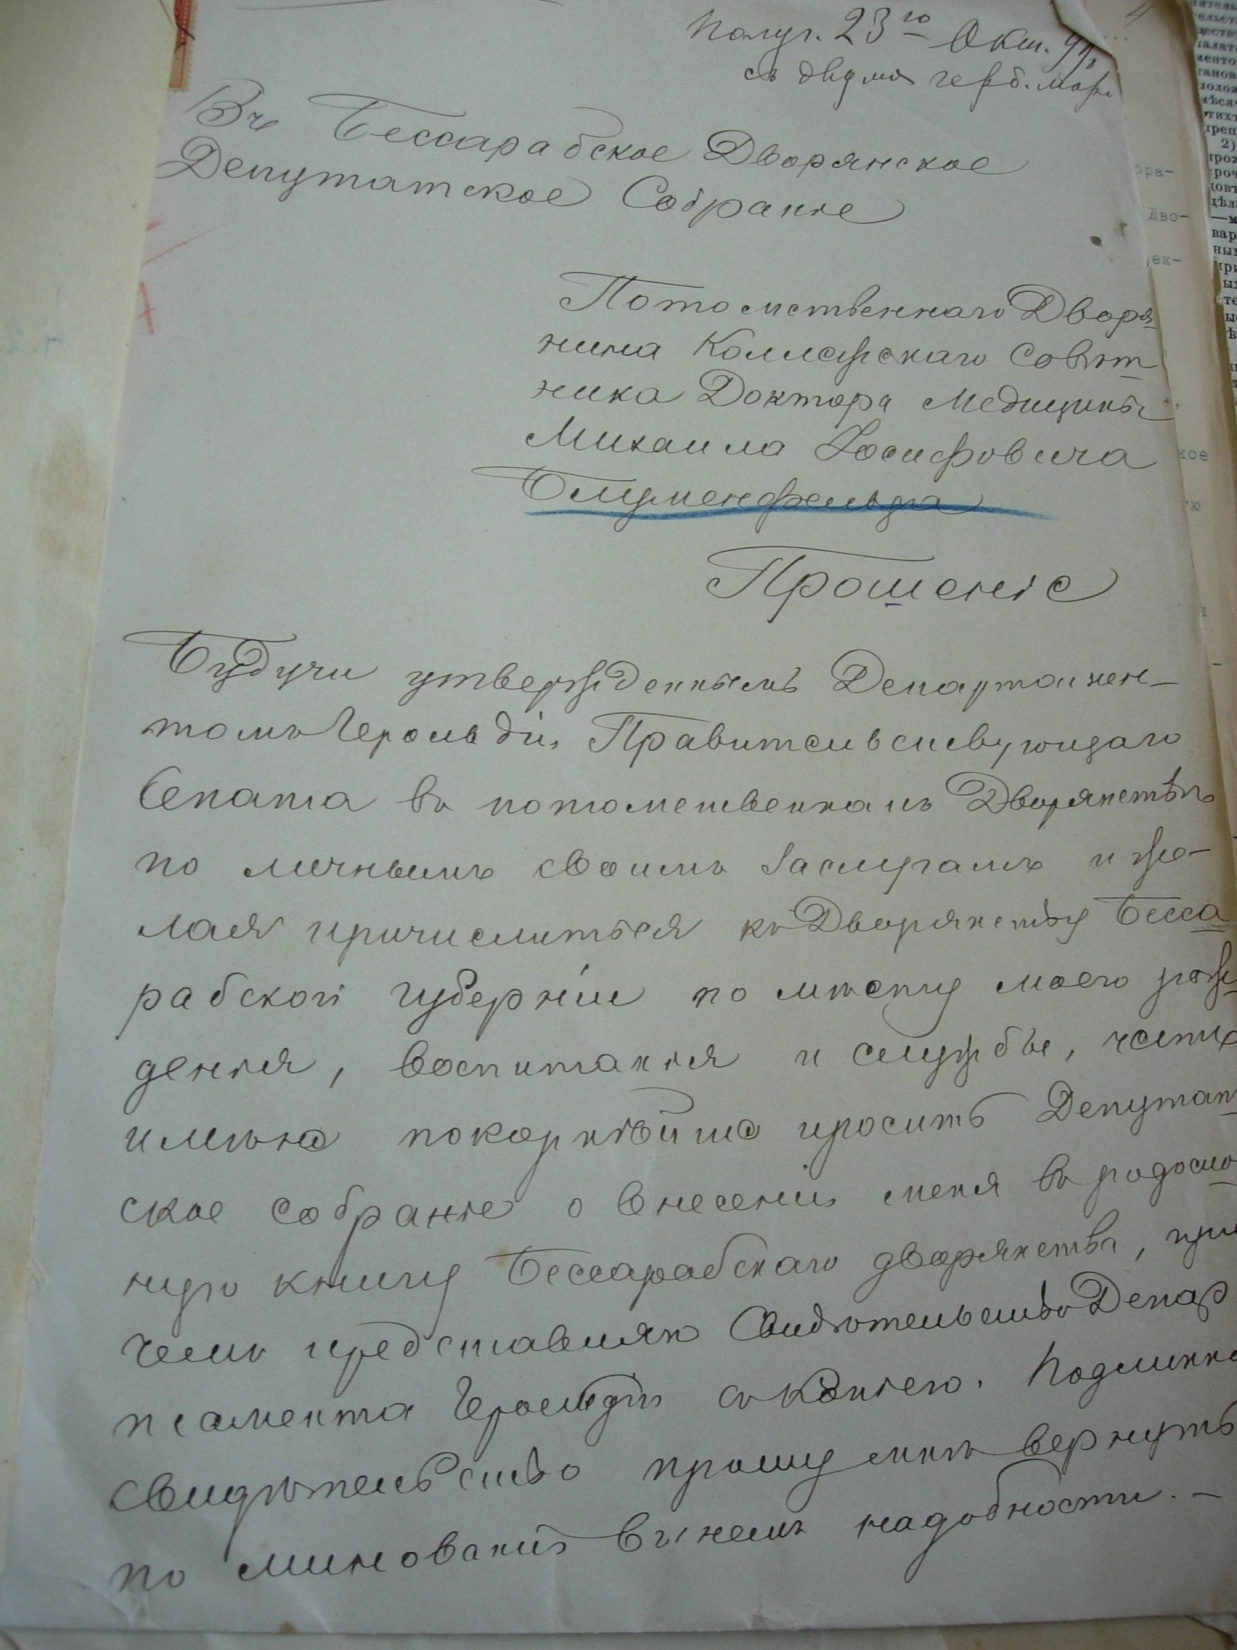 Получ. 23го Окт.
съ двумя герб. мар.
Въ Бессарабское Дворянское
Депутатское Собраніе
Потомственнаго Дворя-
нина Коллежскаго Совѣт-
ника Доктора Медицины
Михаила Іосифовича
Блуменфельда
Прошеніе
Будучи утвержденнымъ Департамен-
томъ Герольдіи Правительствующаго
Сената въ потомственномъ Дворянствѣ
по личнымъ своимъ заслугамъ и же-
лая причислиться къ Дворянству Бесса
рабской губерніи по мѣсту моего рож-
денія, воспитанія и службы, честь
имѣю покорнѣйше просить Депутат
ское собраніе о внесеніи меня въ родосло
ную книгу Бессарабскаго дворянства, при
чемъ представляю Свидѣтельство Депар
тамента Герольдіи съ копіею. Подлинно
свидѣтельство прошу мнѣ вернуть
по минованіи въ немъ надобности. —
2)
вра-
Дво-
ек-
кое
ую